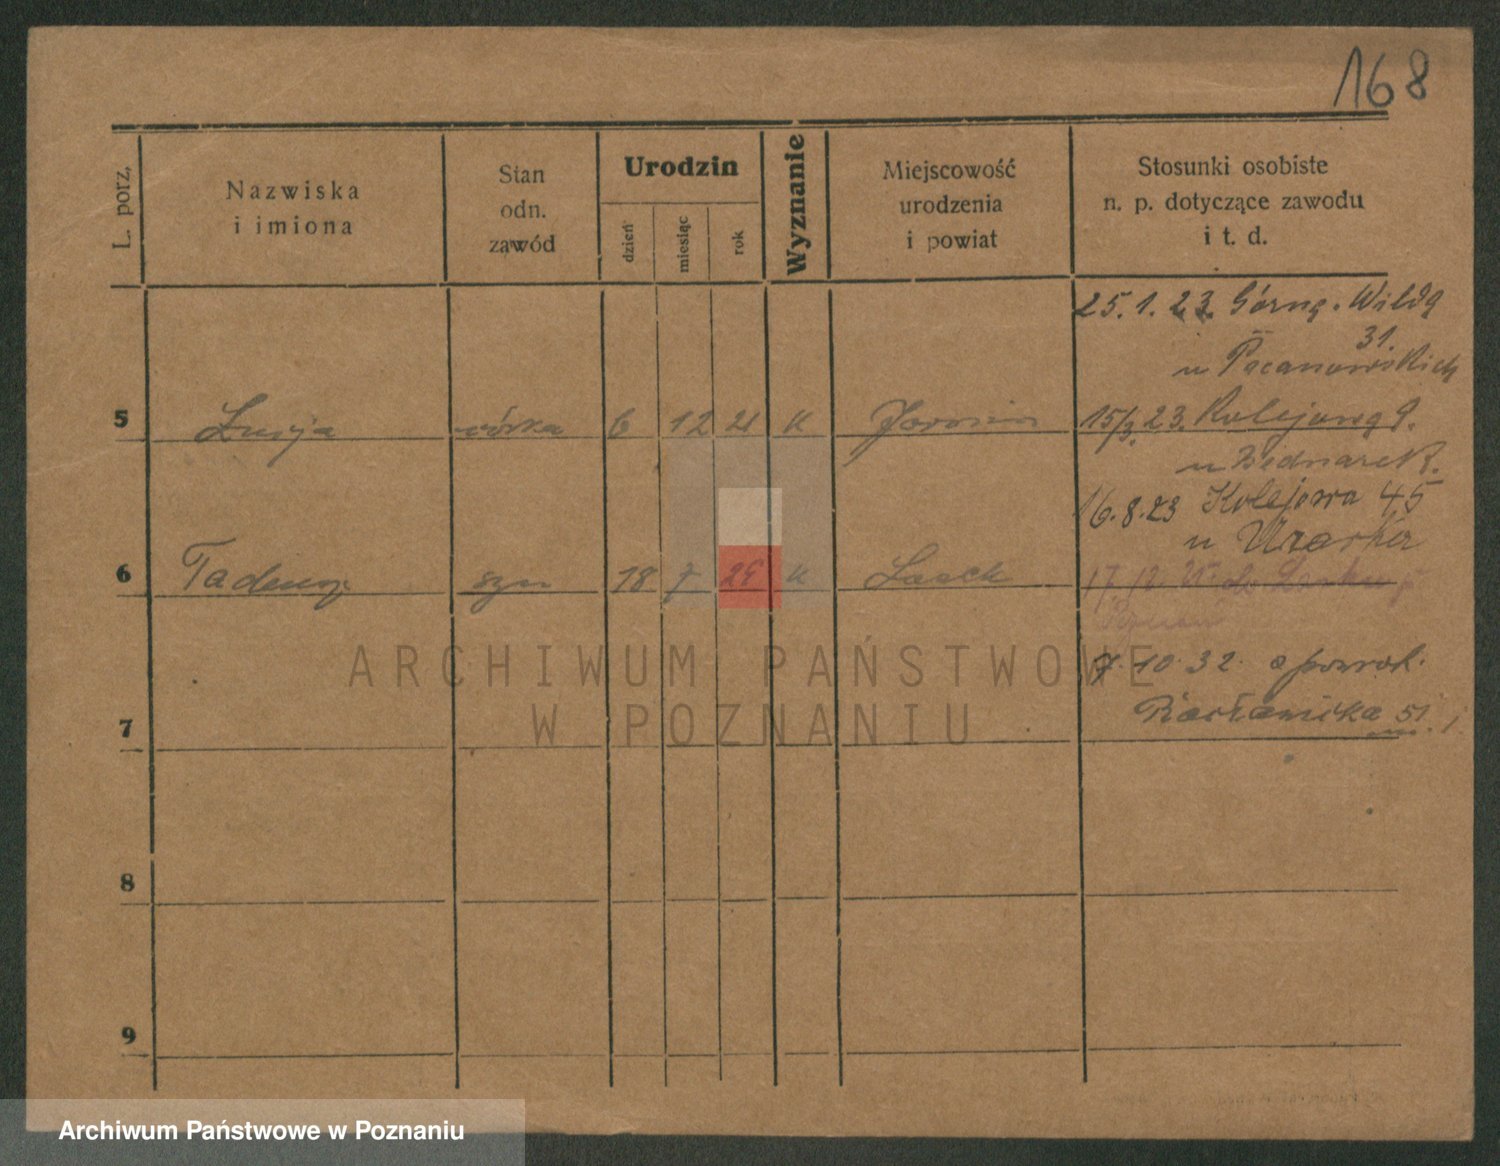 168
L. porz.
Nazwiska
i imiona
Stan
odn.
zawód
Urodzin
dzień
miesiąc
rok
Wyznanie
Miejscowość
urodzenia
i powiat
Stosunki osobiste
n. p. dotyczące zawodu
i t. d.
25.1.23. Górna. Wilda
31.
u Pacanowskich
5 Łucja córka 6 12 21 K 15/3.23. Kolejowa 9.
u Bednarek.
16.8.23 Kolejowa 45
u
6 Tadeusz syn 18 7 K 17.12 do
Poznań
7.10.32.
51
7
8
9
ARCHIWUM PAŃSTWOWE
W POZNANIU
Archiwum Państwowe w Poznaniu